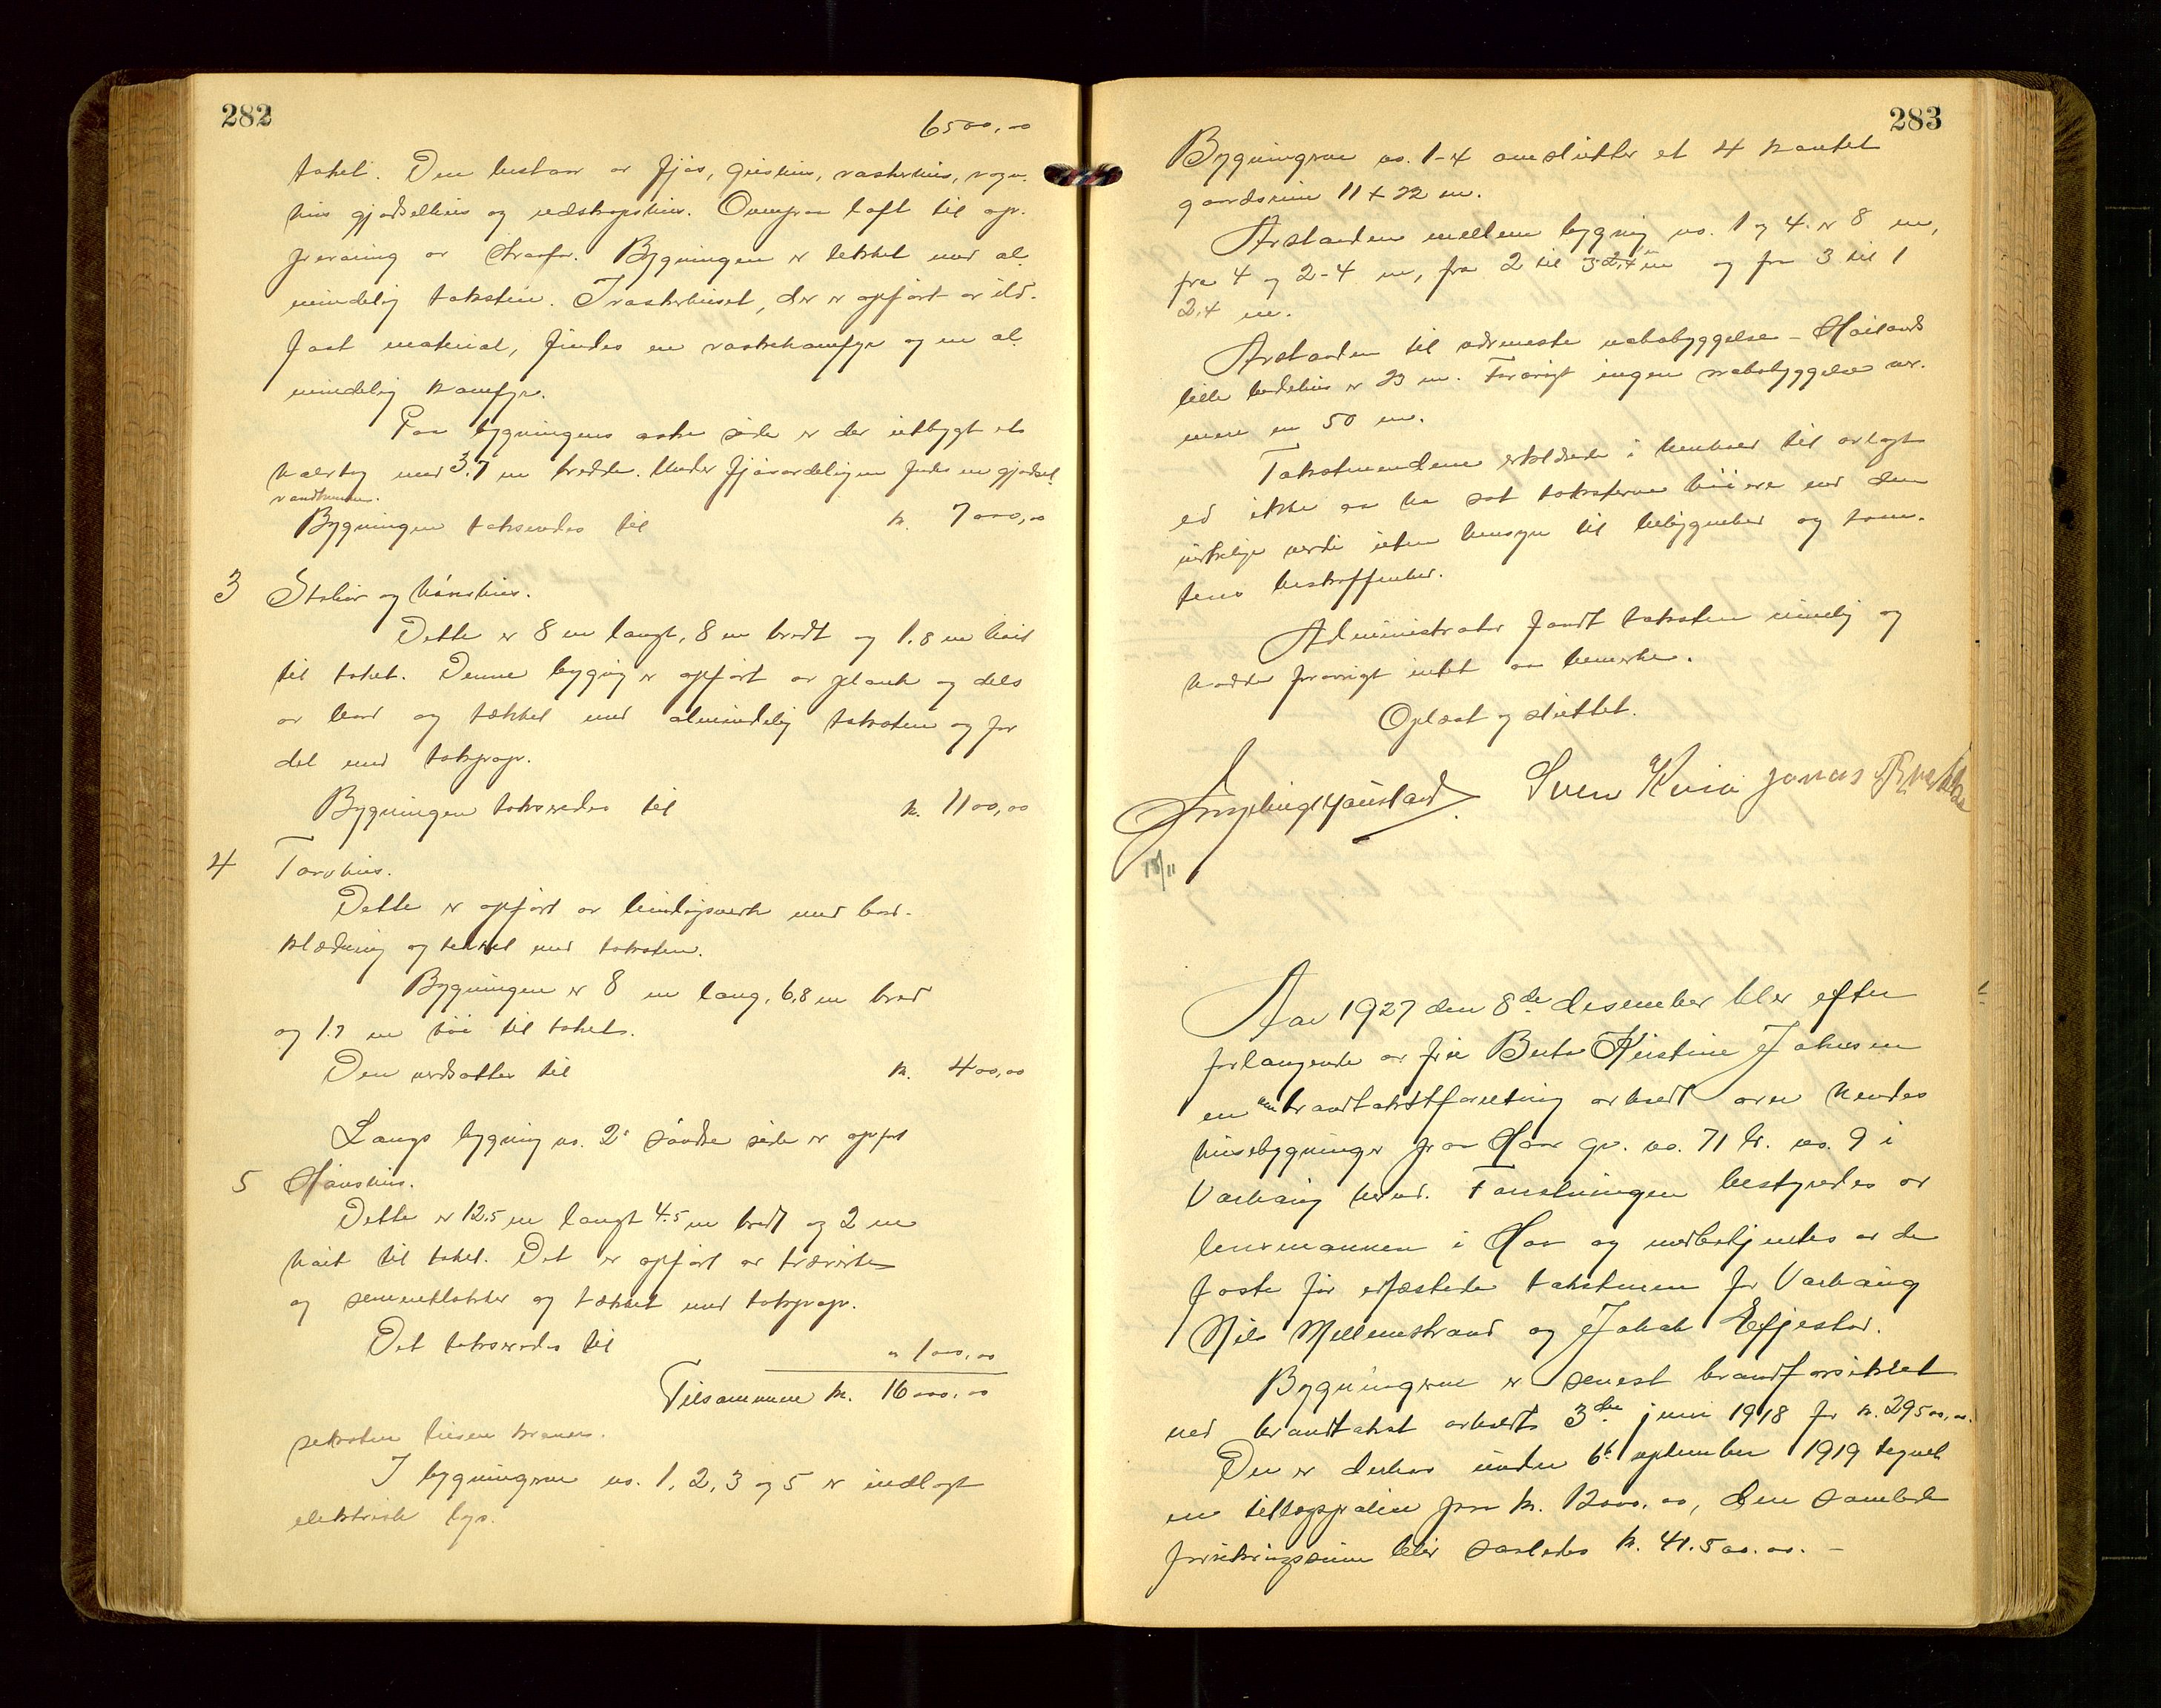 282
6500,00
taket. Den bestaar av fjøs, grishus, vaskehus, vogn-
hus gjødselhus og redskapshus. Ovenpaa loft til op-
bevaring av straafor. Bygningen er tekket med al-
mindelig taksten. I vaskehuset, der er opført av ild-
fast material, findes en vaskekomfyr og en al-
mindelig komfyr.
Paa bygningens side er der utbygt et
halvtag med 3.7 m bredde. Under fjøsavdelingen findes en gjødsel
vandkumme.
Bygningen takseredes til k. 7000,00
3 Stabur og hønsehus.
Dette er 8 m langt, 8 m bredt og 1.8 m høit
til taket. Denne bygnig er opført av plank og dels
av bord og tækket med almindelig taksten og for
del med takpap.
Bygningen takseredes til k. 1100,00
4 Torvhus.
Dette er opført av bindigsverk med bord-
klædning og tekket med taksten.
Bygningen er 8 m lang, 6,8 m bred
og 1.7 m høi til taket.
Den verdsattes til k. 400,00
Langs bygning no. 2s søndre side er opført
5 Hønshus.
Dette er 12.5 m langt 4.5 m bredt og 2 m
høit til taket. Det er opført av
og sementblokker og tækket med takpap.
Det takseredes til " 1000,00
Tilsammen kr. 16000,00
seksten tusen kroner.
I bygningerne no. 1, 2, 3 og 5 er indlagt
elektrisk lys.
283
Bygningerne no. 1-4 omslutter et 4 kantet
gaardsrum 11 x 22 m.
Avstanden mellem bygnig no. 1 og 4 er 8 m,
fra 4 og 2 - 4 m, fra 2 til 3 2,4 m og fra 3 til 1
2,4 m.
Avstanden til nærmeste nabobyggelse - Høilands
lille bedehus er 23 m. Forøvrigt ingen nabobyggelse nær-
mere en 50 m.
Takstmendene erklærede i henhold til avlagt
ed ikke at ha sat taksterne høiere end den
virkelige verdi uten hensyn til beliggenhed og tom-
tens beskaffenhed.
Administrator fandt taksten rimelig og
hadde forøvrigt intet at bemerke.
Oplæst og sluttet.
Sven Kvia Jonas
18/11
Aar 1927 den 8de desember blev efter
forlangende av fru Berta Kristine Jakobsen
en brandtakstforretning avholdt over hendes
husebygninger paa Haar gr. no. 71 br. no. 9 i
Varhaug herred. Forretningen bestyredes av
lensmannen i Haa og medbetjentes av de
faste før edfæstede takstmenn for Varhaug
Nils Mellemstrand og Jakob Efjestad.
Bygningerne er senest brandforsikret
ved brandtakst avholdt 3die juni 1918 for k. 29500,00.
Der er derhos under 6t september 1919 tegnet
en tillegspolise paa k. 12000.00, den samlede
forsikringssum blir saaledes k. 41.500.00. -